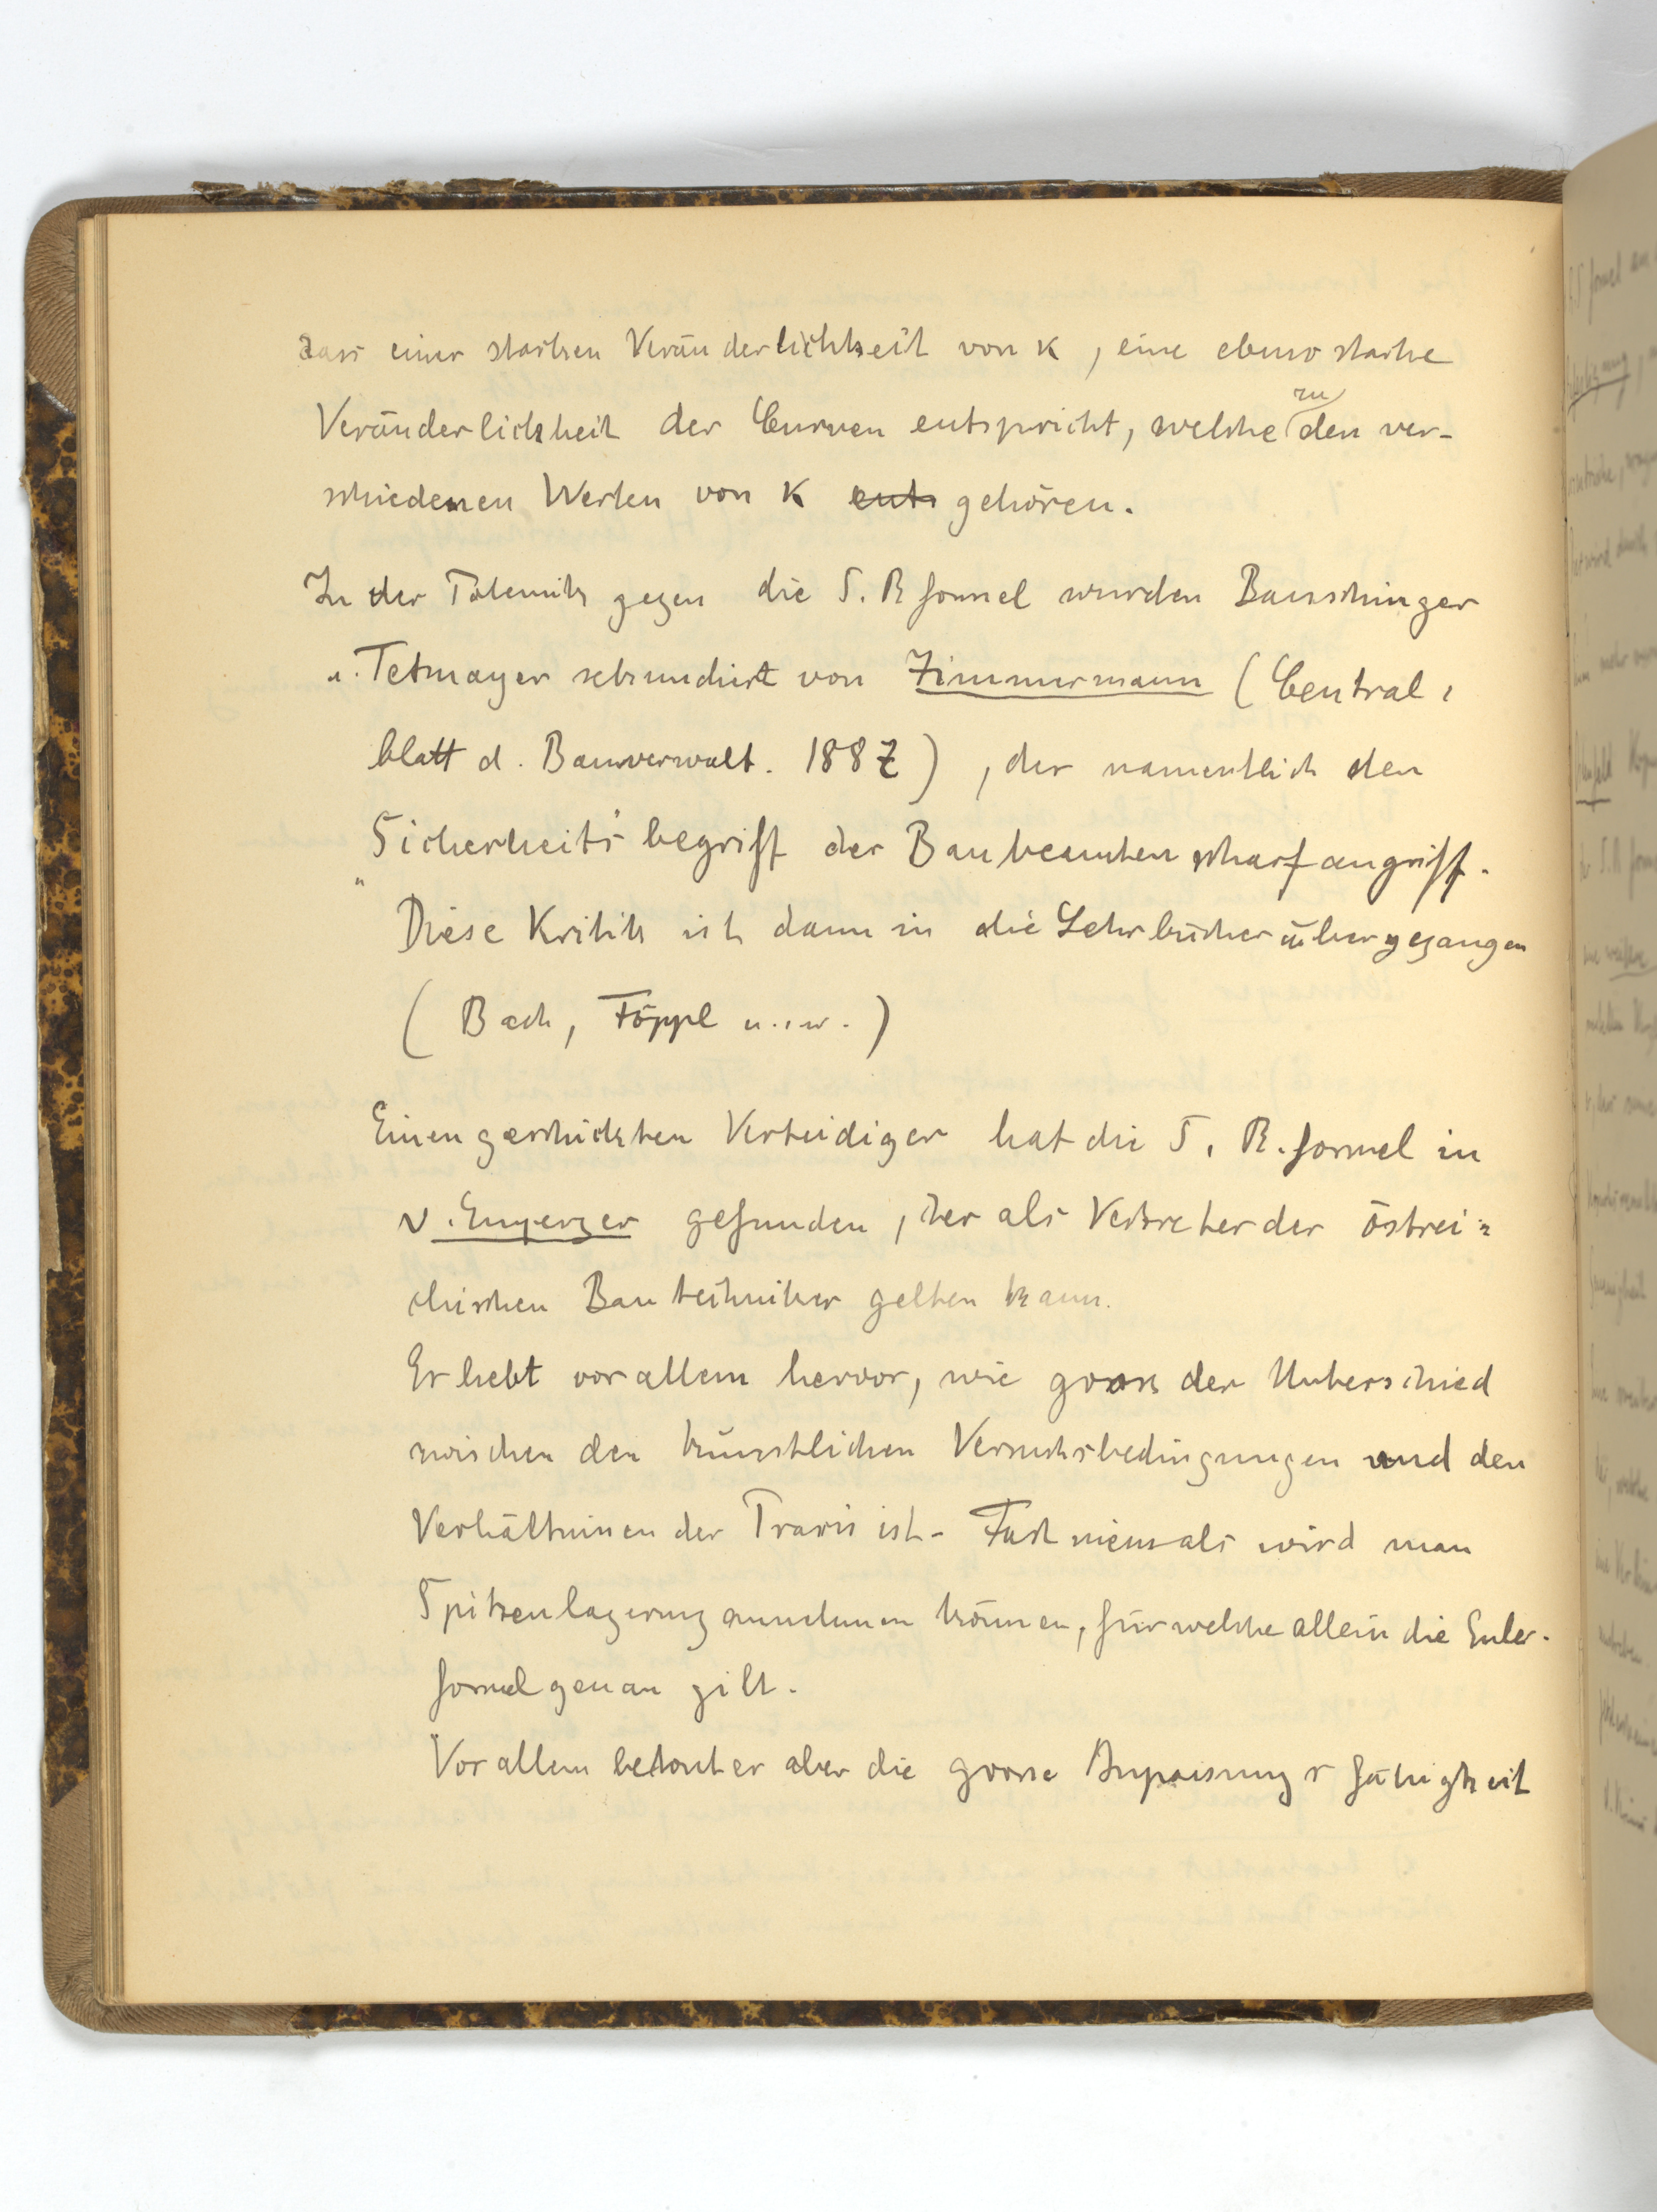 dass einer starken Veränderlichkeit von κ, eine ebenso starke
Veränderlichkeit der Curven entspricht, welche zu den ver-
schiedenen Werten von κ ents gehören.
In der Polemik gegen die S. R formel wurden Bauschinger
u. Tetmayer sekundirt von Zimmermann (Central-
blatt d. Bauverwalt. 1887), der namentlich den
„Sicherheits"begriff der Baubeamten scharf angriff.
Diese Kritik ist dann in die Lehrbücher übergegangen
(Bach, Föppl u.s.w.)
Einen geschickten Verteidiger hat die S. R. formel in
v. Emperger gefunden, der als Vertreter der östrei=
chischen Bautechniker gelten kann.
Er hebt vor allem hervor, wie gross der Unterschied
zwischen den künstlichen Versuchsbedingungen und den
Verhältnissen der Praxis ist. Fast niemals wird man
Spitzenlagerung annehmen können, für welche allein die Euler-
formel genau gilt.
Vor allem betont er aber die grosse Anpassungsfähigkeit